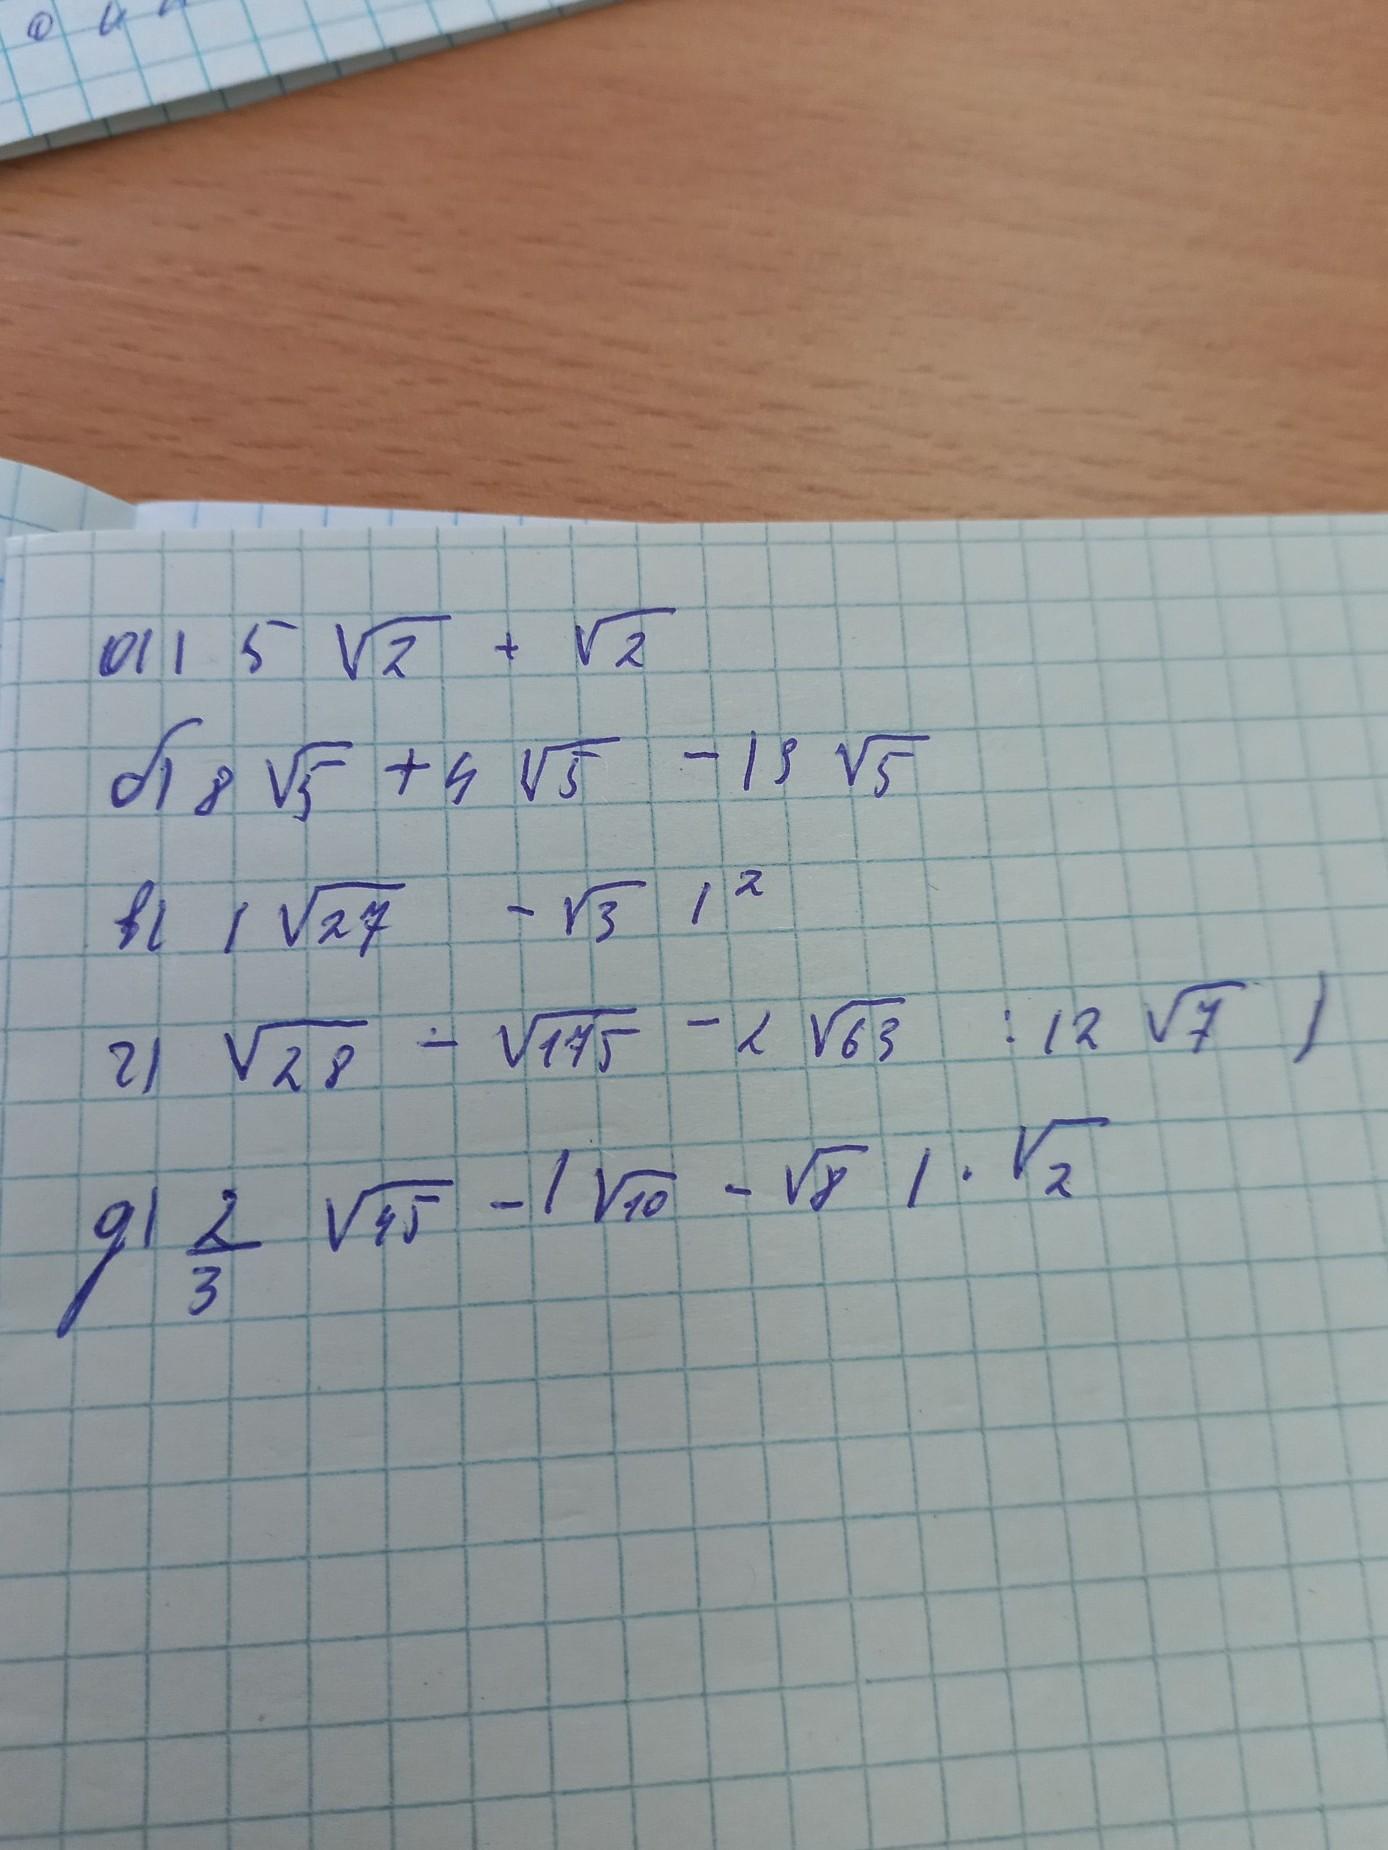 а) 5 √2 + √2
б) 8 √5 + 4 √5 - 13 √5
в) (√27 - √3)²
г) √28 - √175 - 2 √63 : (2 √7)
д) 2/3 √45 - (√10 - √8) · √2